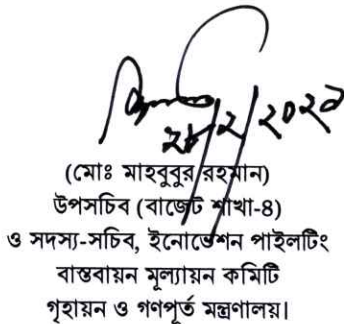 (মোঃ মাহবুবুর রহমান)
উপসচিব (বাজেট শাখা-৪)
ও সদস্য-সচিব, ইনোভেশন পাইলটিং
বাস্তবায়ন মূল্যায়ন কমিটি
গৃহায়ন ও গণপূর্ত মন্ত্রণালয়।